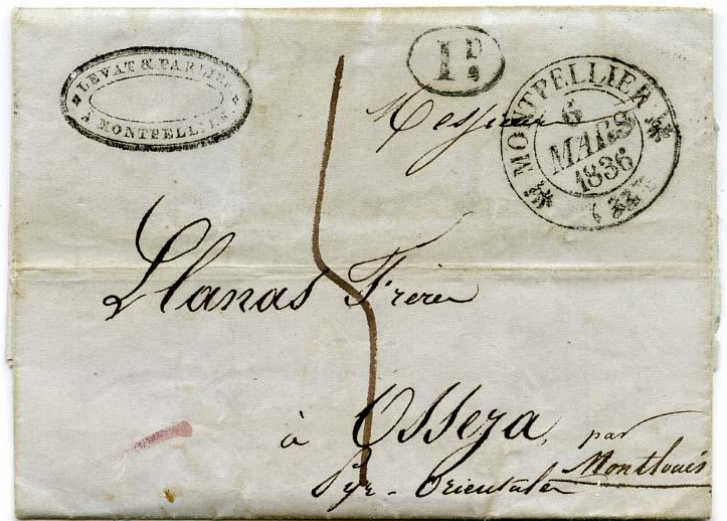 LEVAT & PARLIER
A MONTPELLIER
1 D 4
MONTPELLIER
6
MARS
1836
Messieurs
Llanas Frères
à Osseja, par
Montlouis
Pyr-Orientales